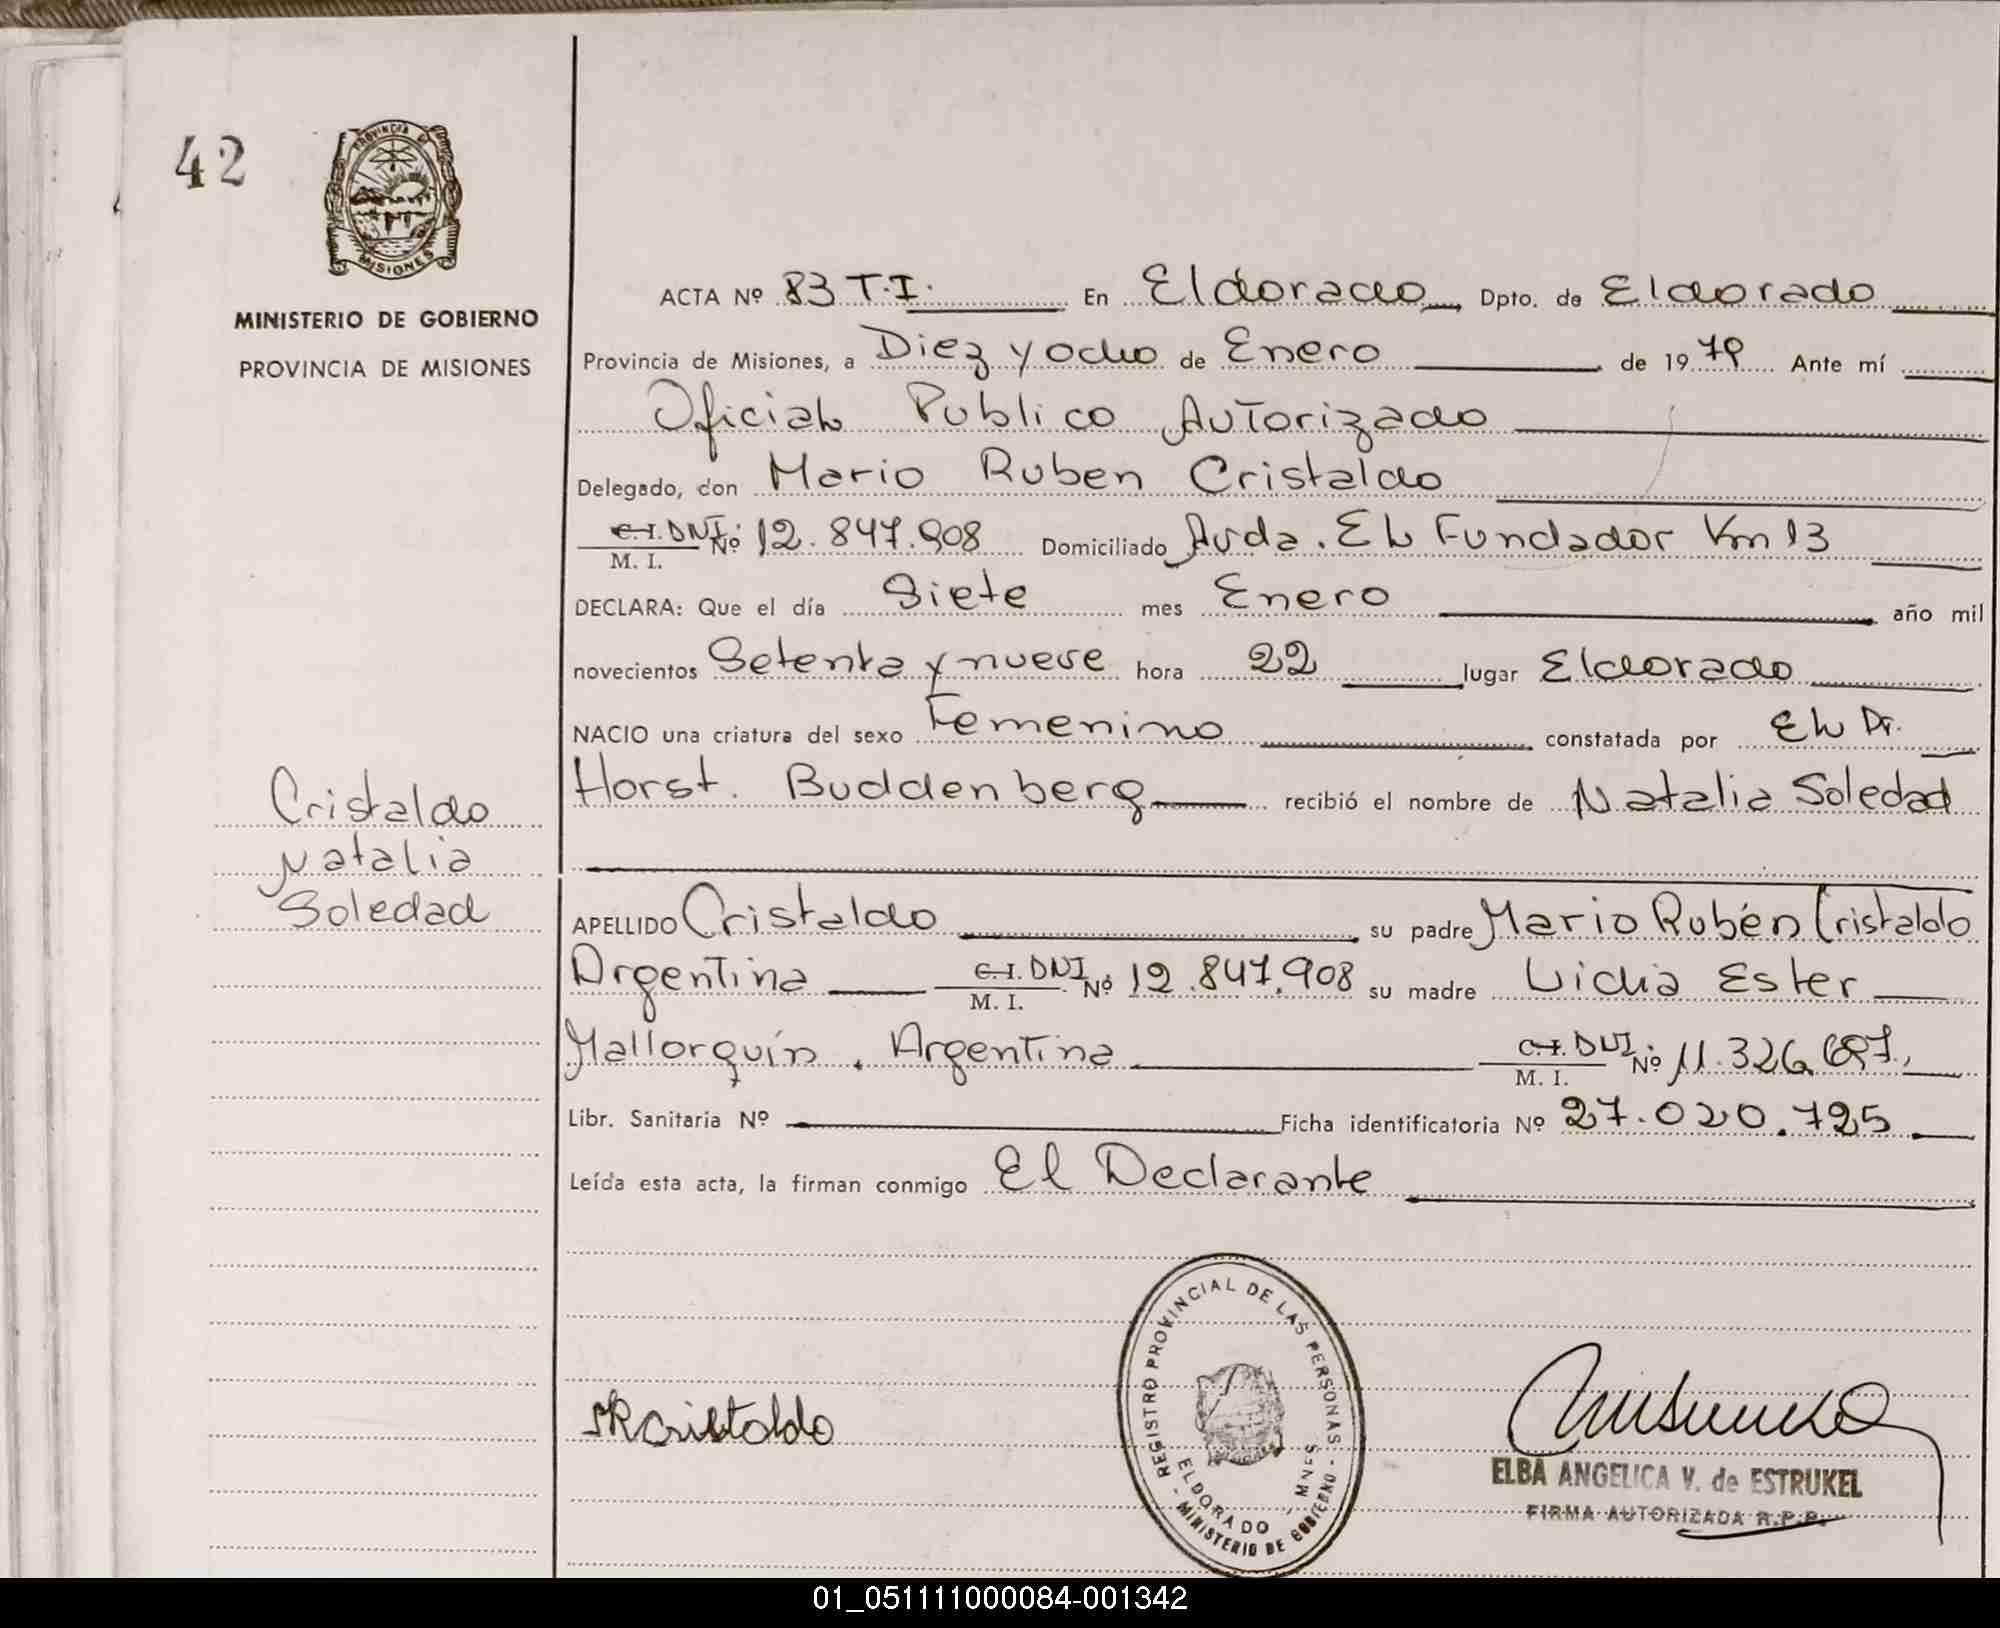 42
PROVINCIA DE
MISIONES
MINISTERIO DE GOBIERNO
PROVINCIA DE MISIONES
ACTA Nº 83 T.I. En Eldorado, Dpto. de Eldorado
Provincia de Misiones, a Diez y ocho de Enero de 1979 Ante mí
Oficial Publico Autorizado
Delegado, don Mario Ruben Cristaldo
C.I. DNI Nº 12.847.908 Domiciliado Avda. El Fundador Km 13
M. I.
DECLARA: Que el día Siete mes Enero año mil
novecientos Setenta y nueve hora 22 lugar Eldorado
NACIO una criatura del sexo Femenino constatada por El Dr.
Horst. Buddenberg recibió el nombre de Natalia Soledad
Cristaldo
Natalia
Soledad
APELLIDO Cristaldo su padre Mario Rubén Cristaldo
Argentina C.I. DNI Nº 12.847.908 su madre Lidia Ester
M. I.
Mallorquín. Argentina C.I. DNI Nº 11.326.697.
M. I.
Libr. Sanitaria Nº Ficha identificatoria Nº 27.020.725
Leída esta acta, la firman conmigo El Declarante
REGISTRO PROVINCIAL DE LAS PERSONAS
ELDORADO - MNES
- MINISTERIO DE GOBIERNO -
MRCristaldo
ELBA ANGELICA V. de ESTRUKEL
FIRMA AUTORIZADA R.P.P.
01_051111000084-001342